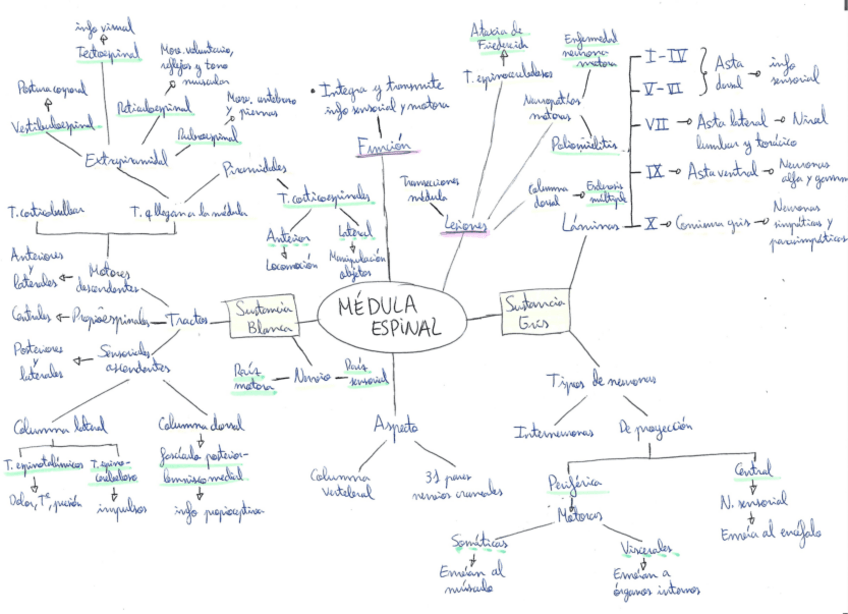 info visual
Tectoespinal
Mov. voluntario,
reflejos y tono
muscular
Postura corporal
Vestibuloespinal
Reticuloespinal
Mov. antebrazo
y piernas
Rubroespinal
Extrapiramidal
Piramidales
T. corticobulbar
T. q llegan a la médula
T. corticoespinales
Anterior
Locomoción
Lateral
Manipulación
objetos
• Integra y transmite
info sensorial y motora
Función
Transecciones
médula
Lesiones
Ataxia de
Friedereich
T. espinocerebelosos
Enfermedad
neurona
motora
Neuropatías
motoras
Poliomielitis
Columna
dorsal
Esclerosis
múltiple
Láminas
I-IV
V-VI
Asta
dorsal
info
sensorial
VII
Asta lateral
Nivel
lumbar y torácico
IX
Asta ventral
Neuronas
alfa y gamma
X
Comisura gris
Neuronas
simpáticas y
parasimpáticas
Anteriores
y
laterales
Motores
descendentes
Centrales
Propioespinales
Tractos
Posteriores
y
laterales
Sensoriales
ascendentes
Sustancia
Blanca
MÉDULA
ESPINAL
Sustancia
Gris
Raíz
motora
Nervio
Raíz
sensorial
Columna lateral
T. espinotalámicos
Dolor, Tª, presión
T. espino-
cerebeloso
impulsos
Columna dorsal
fascículo posterior-
lemnisco medial
info propioceptiva
Aspecto
Columna
vertebral
31 pares
nervios craneales
Tipos de neuronas
Interneuronas
De proyección
Periférica
Motoras
Somáticas
Envían al
músculo
Viscerales
Envían a
órganos internos
Central
N. sensorial
Envía al encéfalo